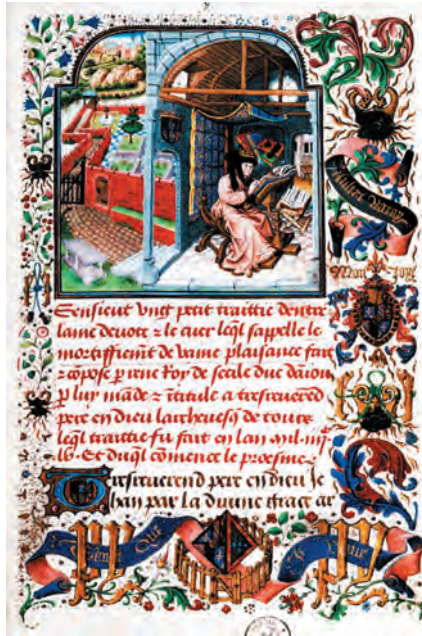 Sensieut vngt petit traittie dentre
lame deuote & le cuer leql sappelle le
mortiffiemt de vaine plaisance fait
& compose p rene Roy de secile duc daniou
p luy mãde & ĩtitule a tresreuered
pere en dieu larcheuesq̃ de tours
leql traittie fu fait en lan mil iiijᶜ
lv. Et duql cõmence le proesme
Tresreuerend pere en dieu Je
han par la diuine grace ar